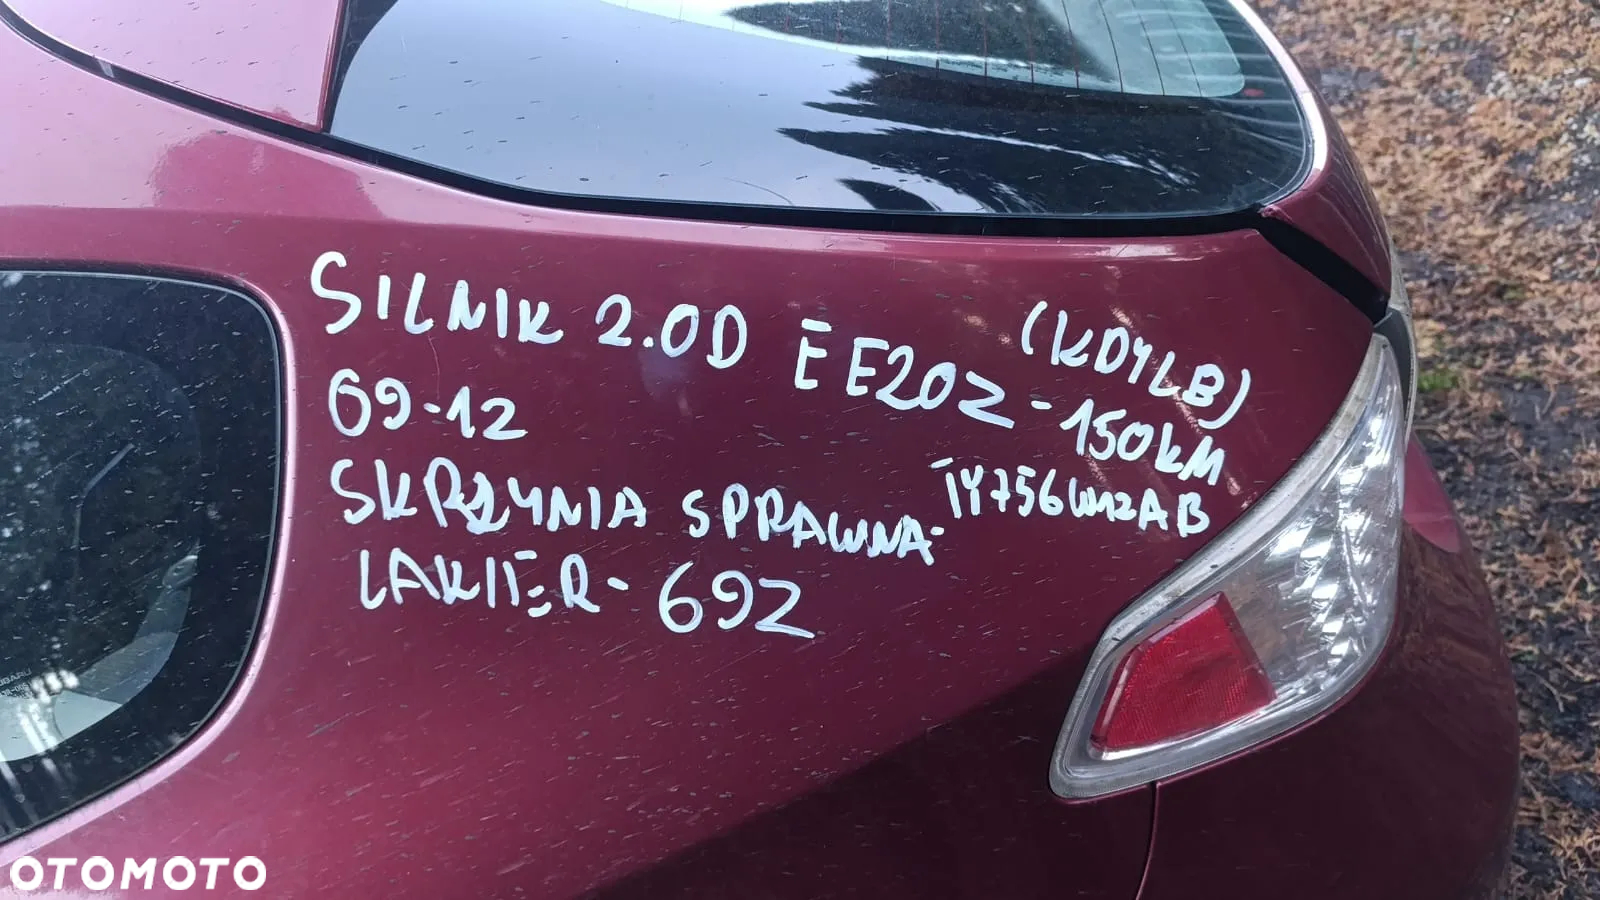 SILNIK 2.0D EE20Z - 150KM (KDYLB)
09-12
SKRZYNIA SPRAWNA - TY756W1ZAB
LAKIER - 69Z
SUBARU
OTOMOTO